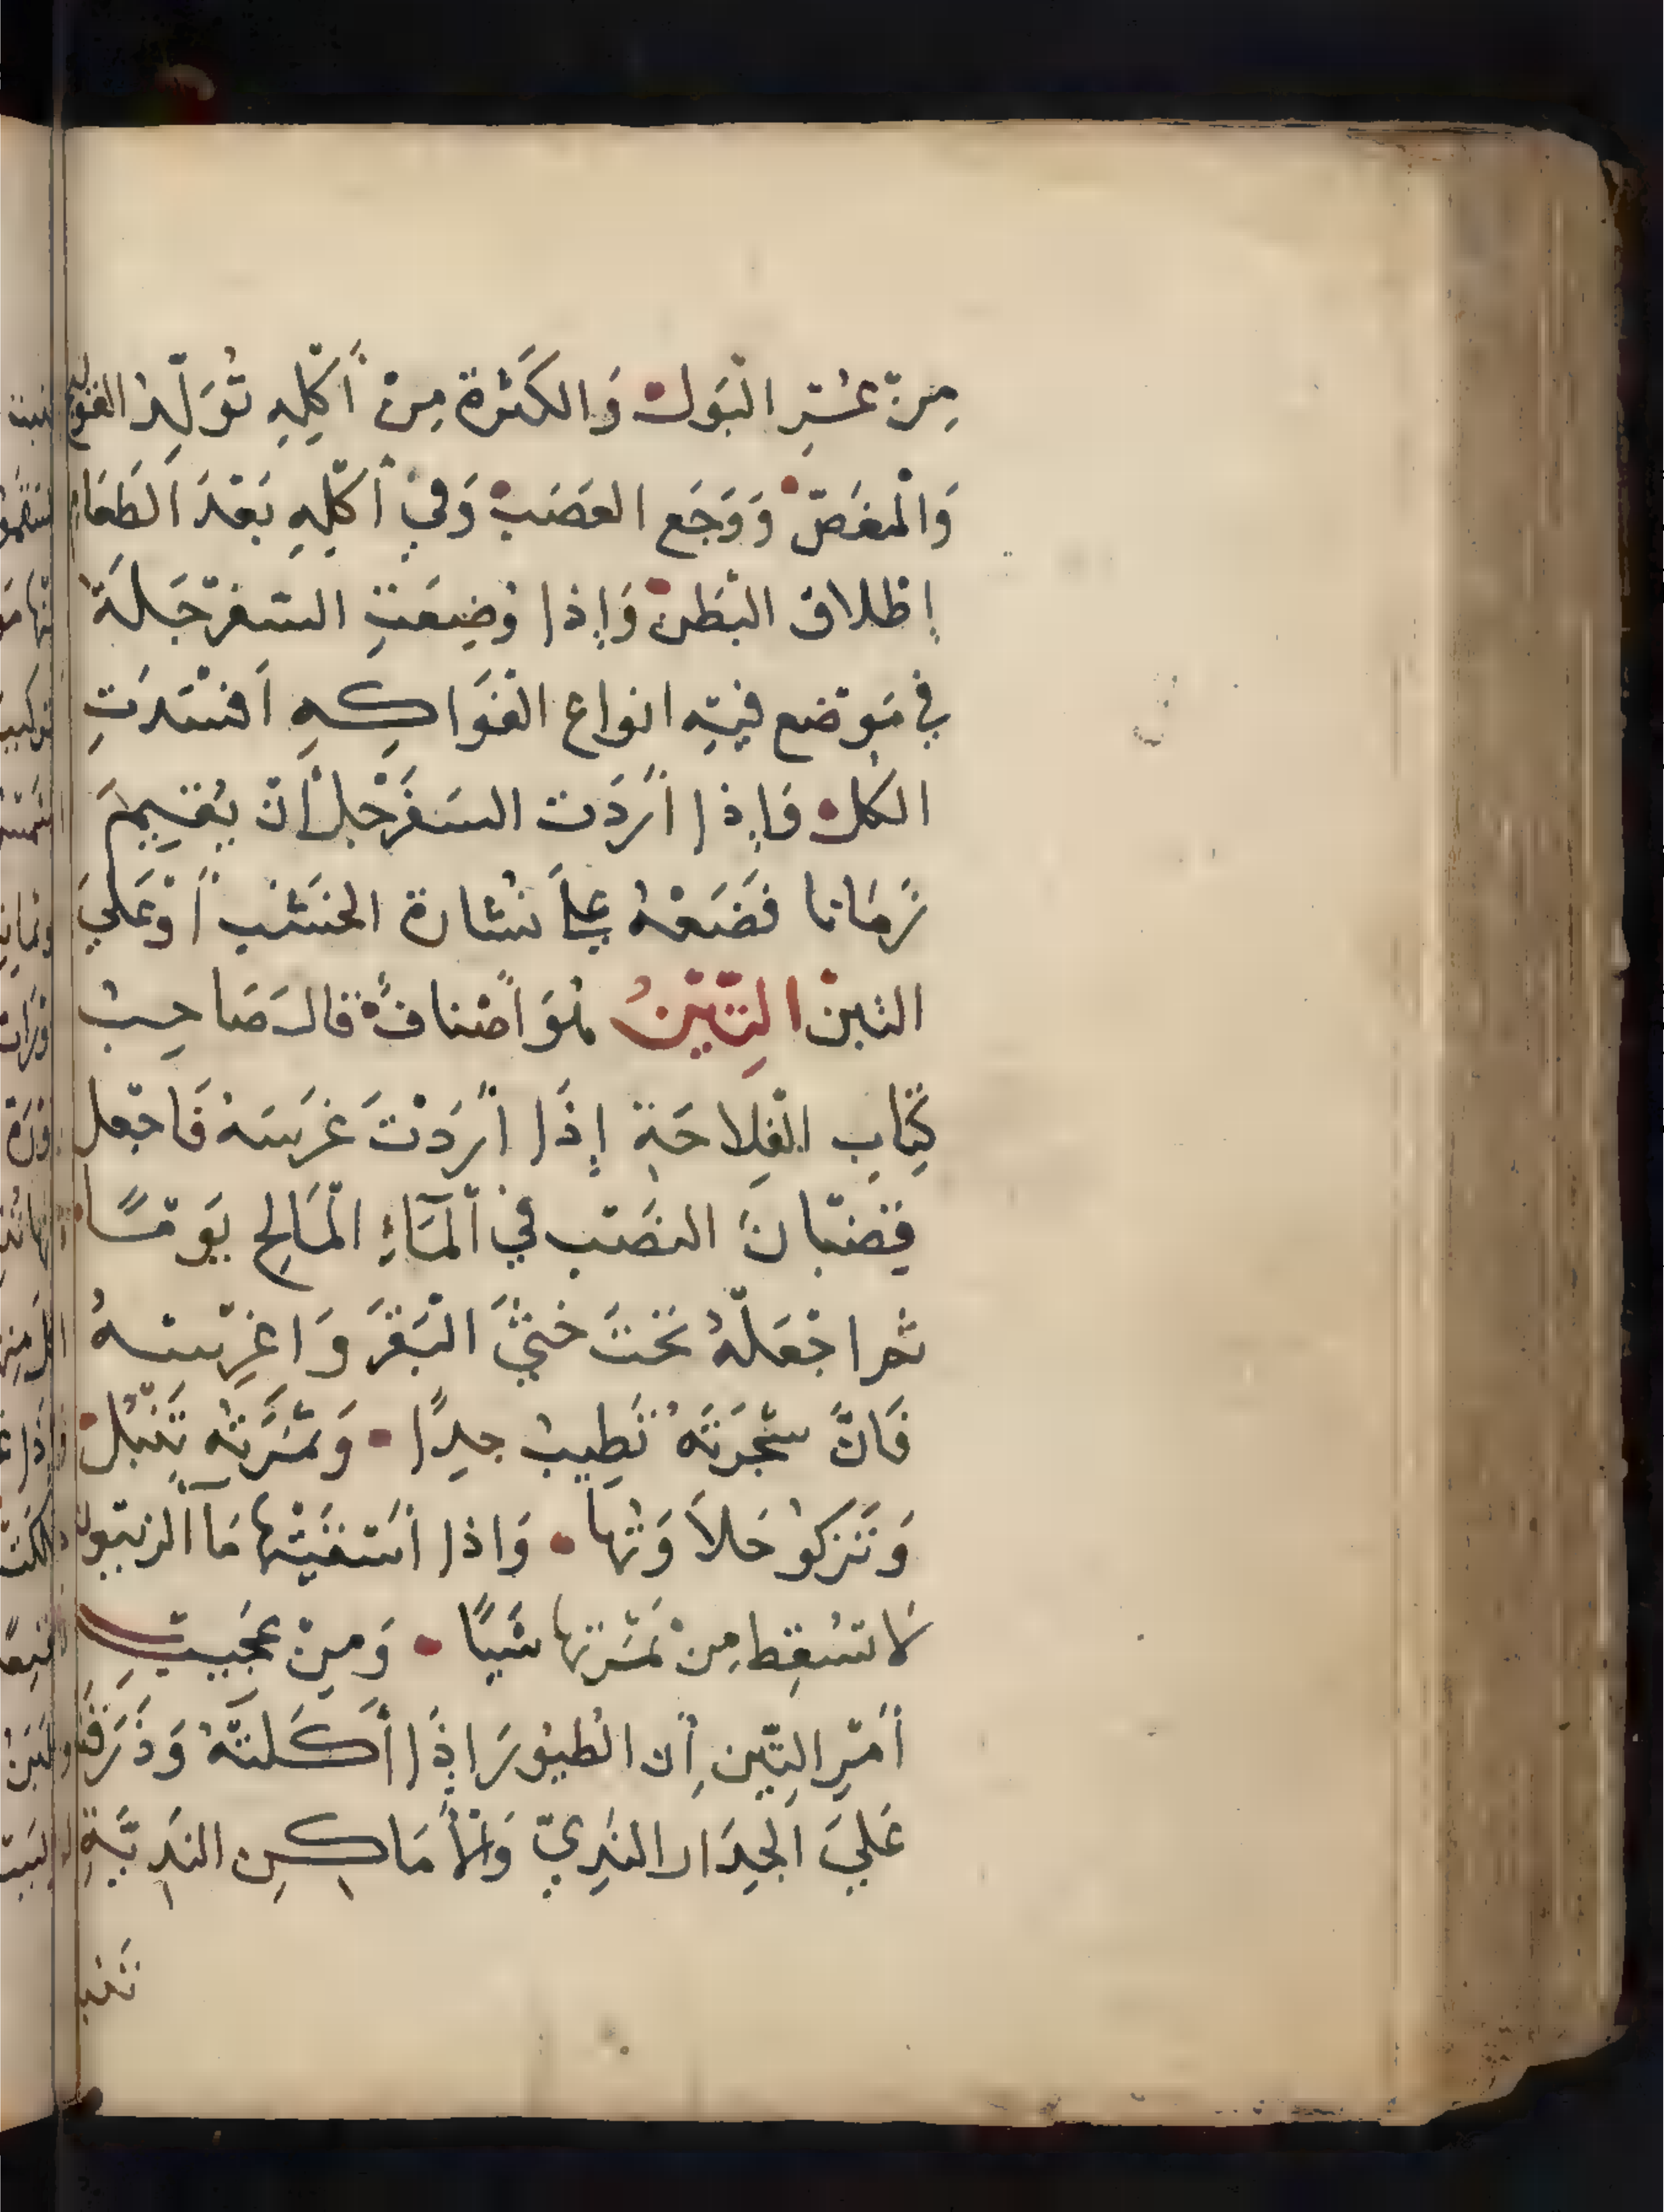 مِنْ عُسْرِ الْبَول وَالكَثْرة مِنْ أَكْلِهِ تُوَلِّدُ القولنج
وَالْمغَصْ وَوَجَع العَصَب وَفي أَكْلِهِ بَعْدَ الَطَعَامِ
إطْلاق البَطن وَإذا وُضِعَتِ السَفرْجَلَة
في مَوْضع فيْهِ انواع الفَوَاكِهِ اَفْسَدَتِ
الكل فَإِذا أَرَدَت السَفَرْجل أن يُقيِمَ
زَمَانا فَضَعْهُ علىَ نُشارة الخشَب أَوْ عَلىَ
التبن التِيْنُ هُوَ أَصْنافٌ قال صَاحِبُ
كِتَابِ الْفِلاحَةِ إِذَا أَرَدْتَ غَرسَهُ فَاجْعل
قِضْبَانَ النَصَب في اْلمَآءِ الْمَالِح يَوْمًا
ثم اجْعَلْهُ تحْتَ خثيَّ الْبَقَرَ وَاغرِسْهُ
فَانَّ شَجَرَتَهُ تَطِيبُ جدًا • وَثمَرَتُه تَنْبُلْ
وَتَزكُوا حَلاَوَتُها • وَاذا أسْقَيْتها مَآ الزيتون
لاَ تَسْقِط مِنْ ثمَرَتها شَيًا • وَمِنْ عَجَيبِ
أَمْرِ التِّين أن الطيُورَ إذَا أَكَلَتَهُ وَذَرَقَت
عَلىَ الجِدَار النَدِيّ وَالأَمَاكِنِ النَدِيَّةِ